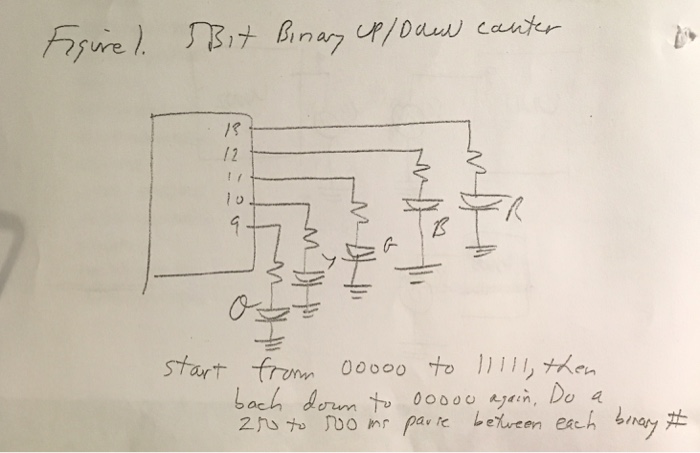 Figure 1. 5Bit Binary UP/Down counter
13
12
11
10
9
R
B
G
Y
O
start from 00000 to 11111, then
back down to 00000 again. Do a
250 to 500 ms pause between each binary #